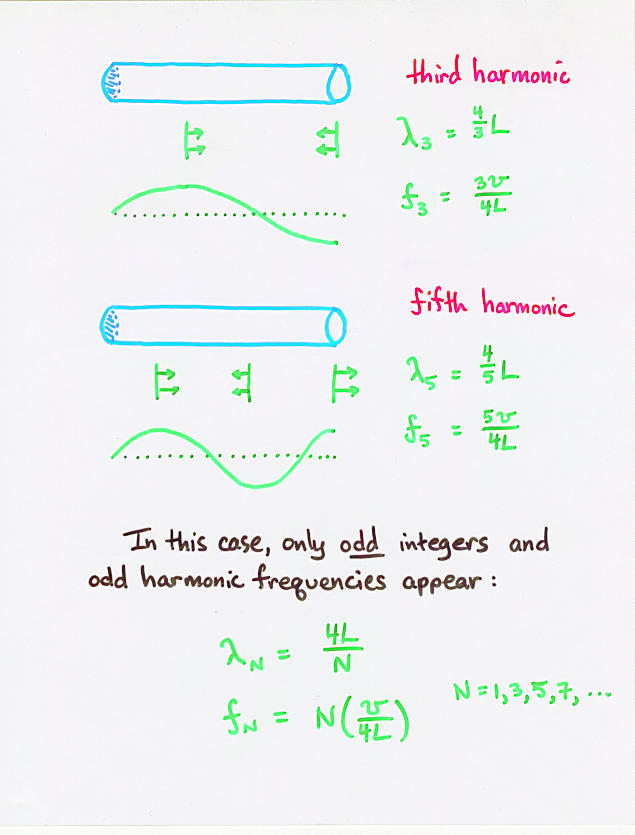 third harmonic
λ₃ = 4/3 L
f₃ = 3v/4L
fifth harmonic
λ₅ = 4/5 L
f₅ = 5v/4L
In this case, only odd integers and
odd harmonic frequencies appear :
λN = 4L/N
fN = N(v/4L)
N = 1, 3, 5, 7, ...